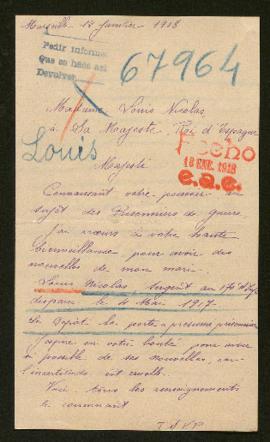 Marseille 12 Janvier 1918
Pedir informe
Que se hada así
Devolver
67964
Madame Louis Nicolas
à Sa Majesté, Roi d'Espagne
Louis
Fecho
18 ENE. 1918
e.a.e.
Majesté
Connaissant votre pouvoir au
sujet des Prisonniers de guerre.
J'ai recours à votre haute
bienveillance pour avoir des
nouvelles de mon mari
Louis Nicolas, sergent au
disparu le 4 Mai 1917.
Le Dépôt le porte présumé prisonnier
J'espère en votre bonté pour avoir
si possible de ses nouvelles, car
l'incertitude est cruelle.
Voici tous les renseignements
le concernant
T.S.V.P.